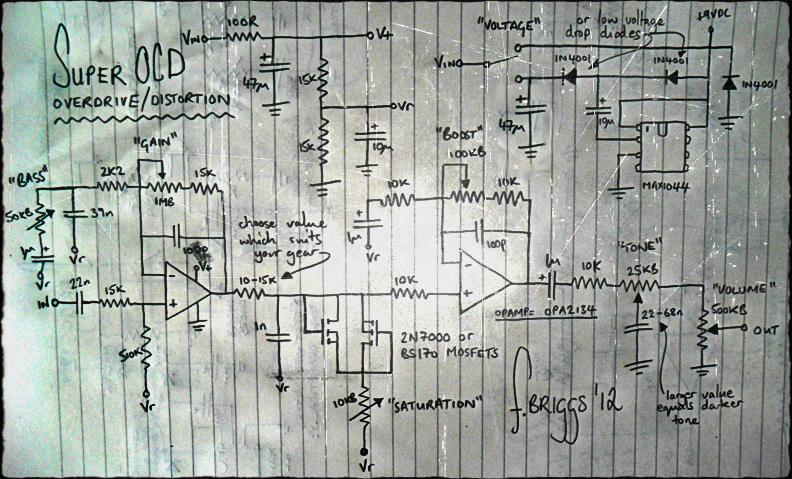 SUPER OCD
OVERDRIVE/DISTORTION
VIN
100R
V+
47µ
15K
Vr
15K
10µ
"VOLTAGE"
or low voltage
drop diodes
+9VDC
VIN
1N4001
1N4001
1N4001
47µ
10µ
1
MAX1044
"BASS"
50KB
2K2
39n
Vr
1µ
Vr
"GAIN"
1MB
15K
100p
V+
IN
22n
15K
-
+
510K
Vr
choose value
which suits
your gear
10-15K
1n
Vr
2N7000 or
BS170 MOSFETS
10KB
"SATURATION"
Vr
1µ
Vr
10K
"BOOST"
100KB
10K
100p
10K
-
+
OPAMP = OPA2134
1µ
10K
"TONE"
25KB
22-68n
larger value
equals darker
tone
"VOLUME"
500KB
OUT
f. BRIGGS '12